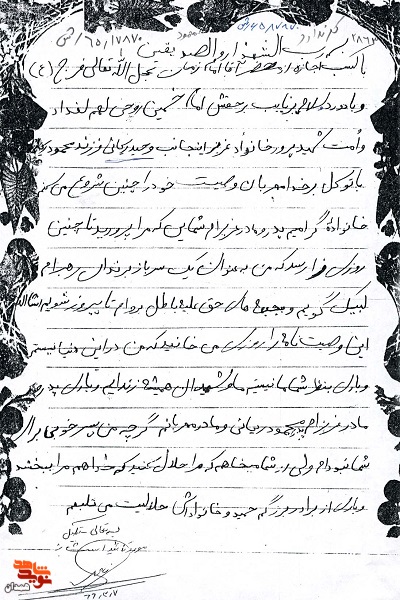 بسم رب الشهدا و الصدیقین
با کسب اجازه از حضرت آقا امام زمان عجل الله تعالی فرج (ع)
و با درود و سلام بر نایب بر حقش امام خمینی روحی لهم لفداد
و امت شهید پرور خانواده عزیزم اینجانب فرزند محمود
با توکل بر خدا مهربان وصیت خود را چنین شروع می کنم
خانوادۀ گرامیم پدر و مادر عزیزم شمایی که مرا پروردید تا چنین
روزی فرا رسد که من به عنوان یک سرباز به ندای رهبرم
لبیک گویم و به جبهه های حق علیه باطل بروم تا پیروز شویم انشااله
این وصیت نامه را روزی می خوانید که من در این دنیا نیستم
و باری بنظر شما نیستم ما و شهدا همیشه زنده ایم و باری پدر
مادر عزیزم پدرم محمود و مادر مهربانم گر چه من پسر خوبی برای
شما نبودم ولی از شما میخاهم که مرا حلال کنید که خدا هم مرا ببخشد
و باری از برادر بزرگم حمید و خانواده اش حلالیت می طلبم
نوید شاهد